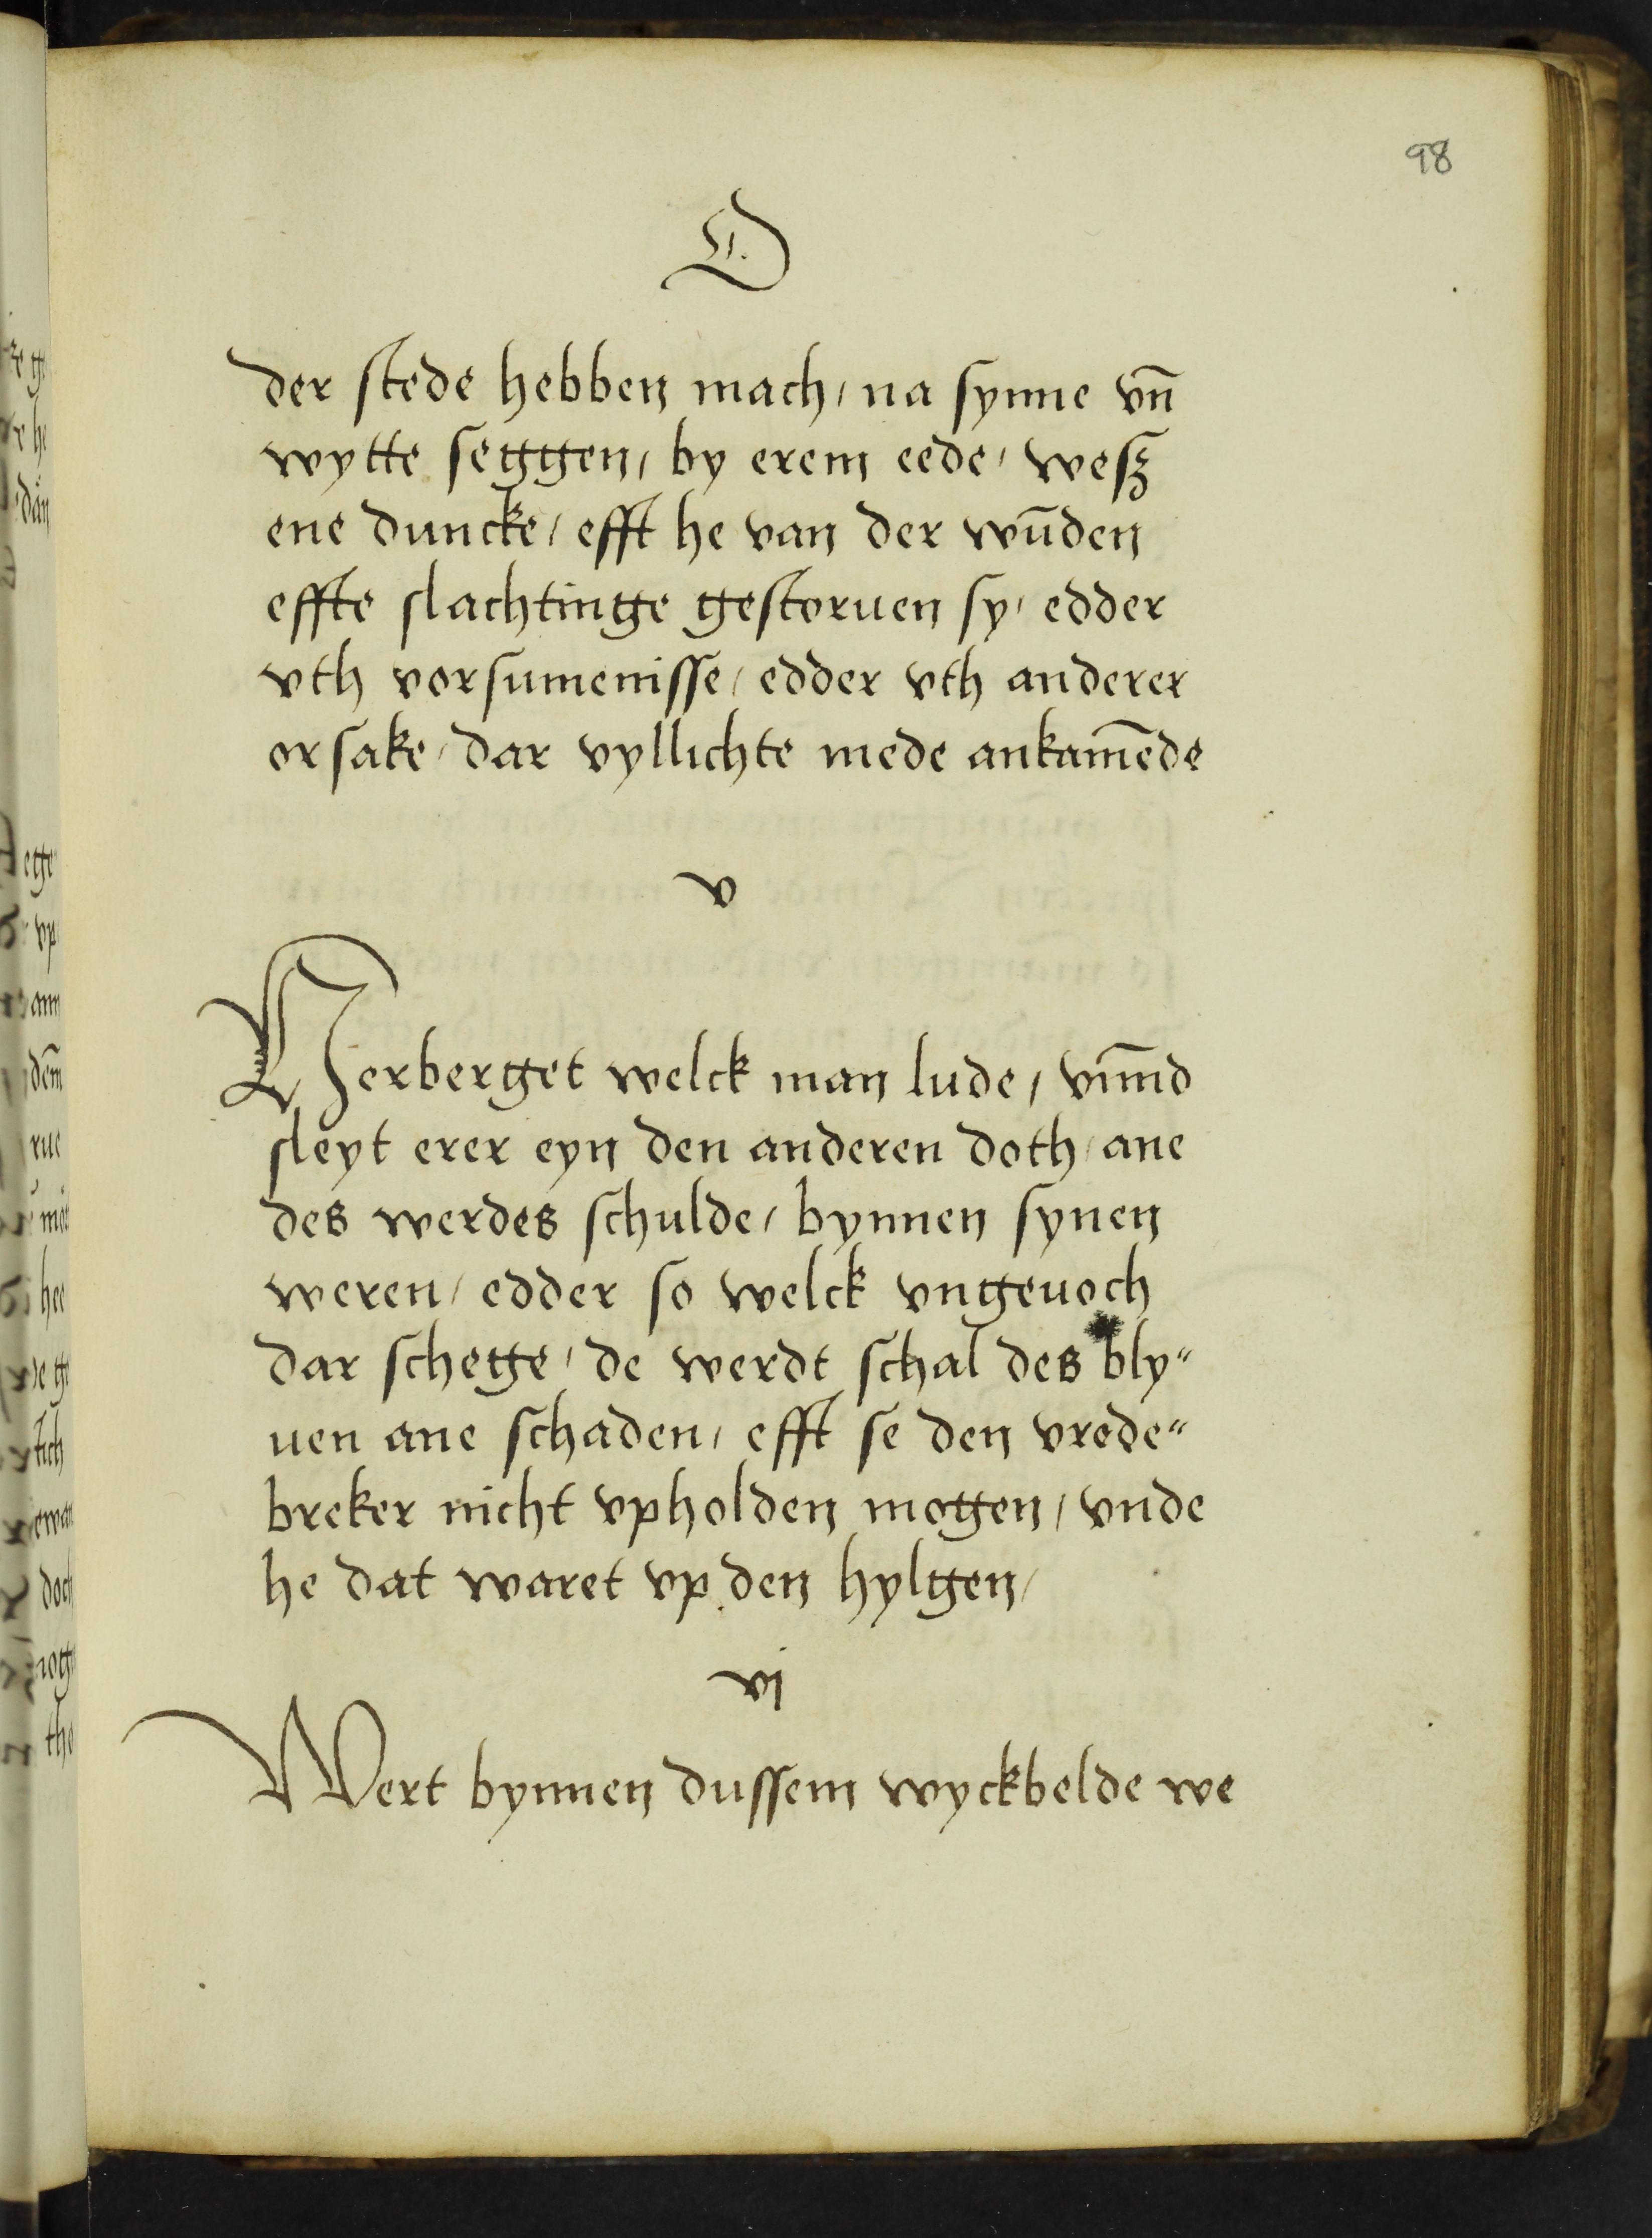 98
O.
der stede hebben mach, na synne vn̄
wytte seggen, by erem eede, wesz
ene duncke, efft he van der wūden
effte slachtinge gestoruen sy, edder
vth vorsumenisse, edder vth anderer
orsake, dar vyllichte mede ankam̄ede
v
Herberget welck man lude, vnnd
sleyt erer eyn den anderen doth, ane
des werdes schulde, bynnen synen
weren, edder so welck vngeuoch
dar schege, de werdt schal des bly"
uen ane schaden, efft se den vrede"
breker nicht vpholden mogen, vnde
he dat waret vp den hylgen,
vj
Wert bynnen dussem wyckbelde we